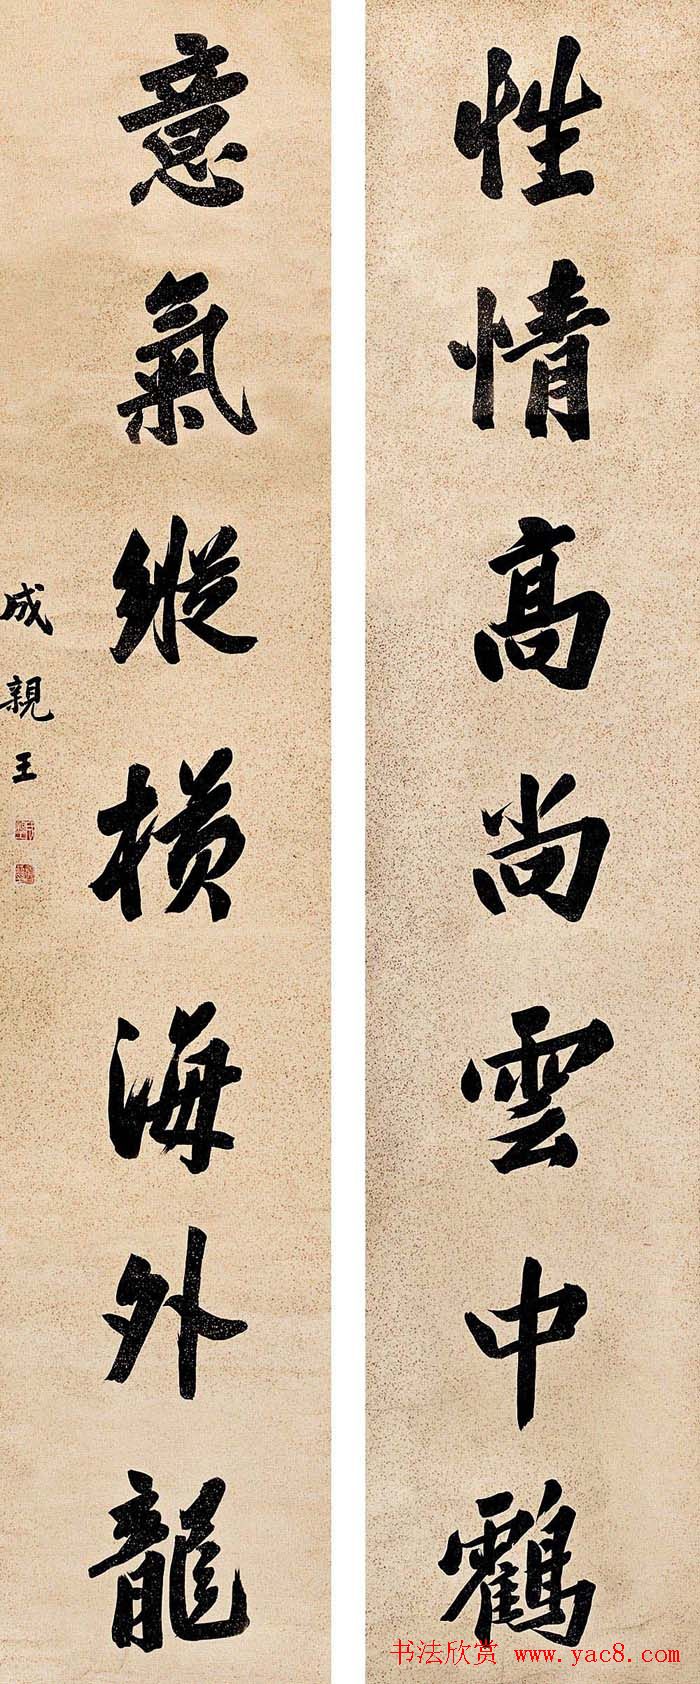 性情高尚雲中鶴
意氣縱橫海外龍
成親王
书法欣赏 www.yac8.com